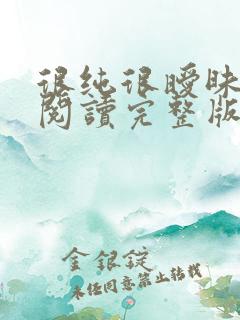 很純很曖昧
閱讀完整版
金銀錠
未经同意禁止转载